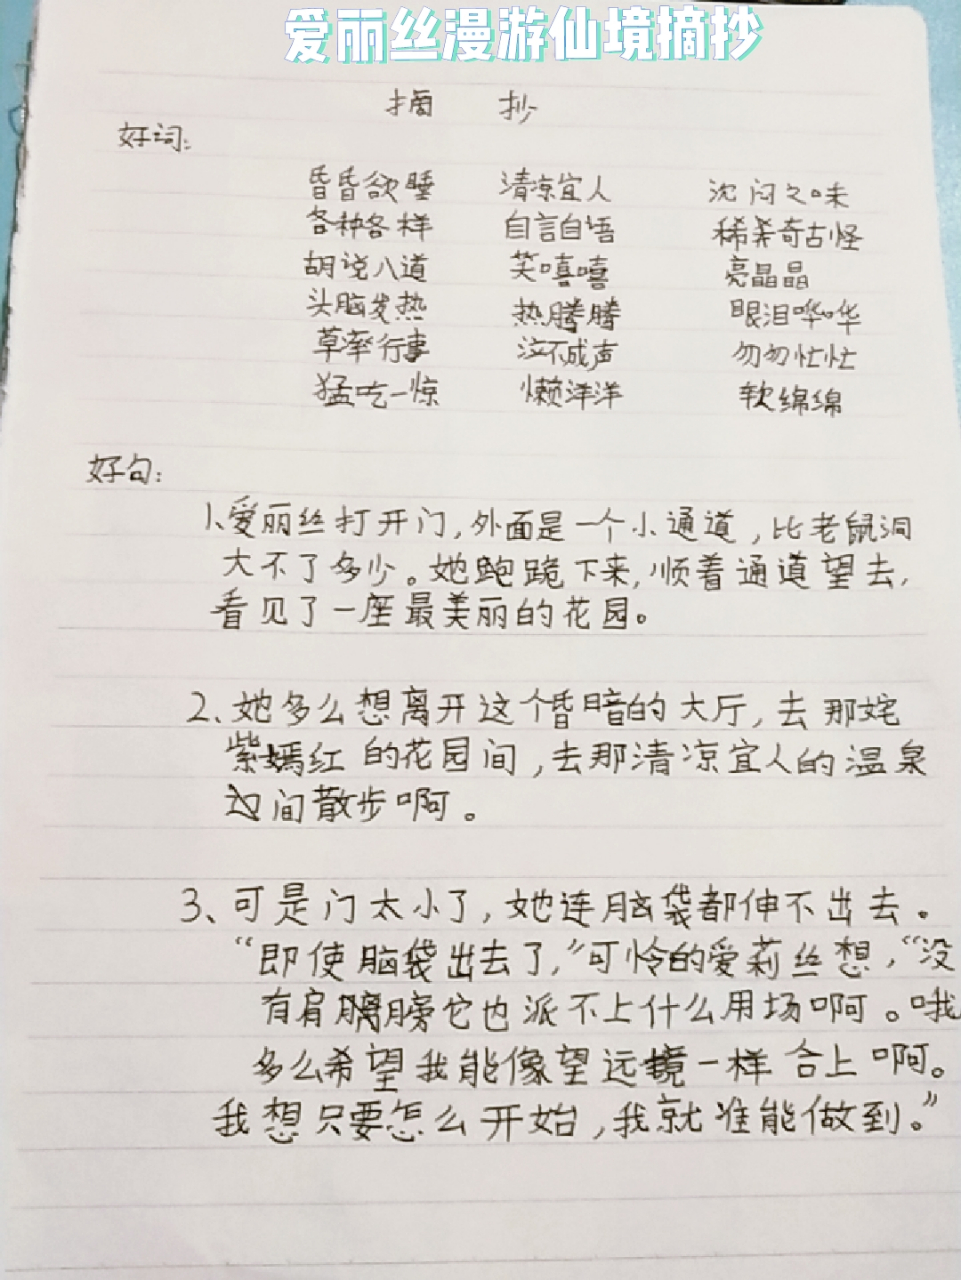 爱丽丝漫游仙境摘抄
摘 抄
好词:
昏昏欲睡 清凉宜人 沈闷之味
各种各样 自言自语 稀奇古怪
胡说八道 笑嘻嘻 亮晶晶
头脑发热 热腾腾 眼泪哗哗
草率行事 泣不成声 匆匆忙忙
猛吃一惊 懒洋洋 软绵绵
好句:
1、爱丽丝打开门,外面是一个小通道,比老鼠洞
大不了多少。她跪下来,顺着通道望去,
看见了一座最美丽的花园。
2、她多么想离开这个昏暗的大厅,去那姹
紫嫣红的花园间,去那清凉宜人的温泉
边间散步啊。
3、可是门太小了,她连脑袋都伸不出去。
“即使脑袋出去了,”可怜的爱莉丝想,“没
有肩膀它也派不上什么用场啊。哦
多么希望我能像望远镜一样合上啊。
我想只要怎么开始,我就准能做到。”